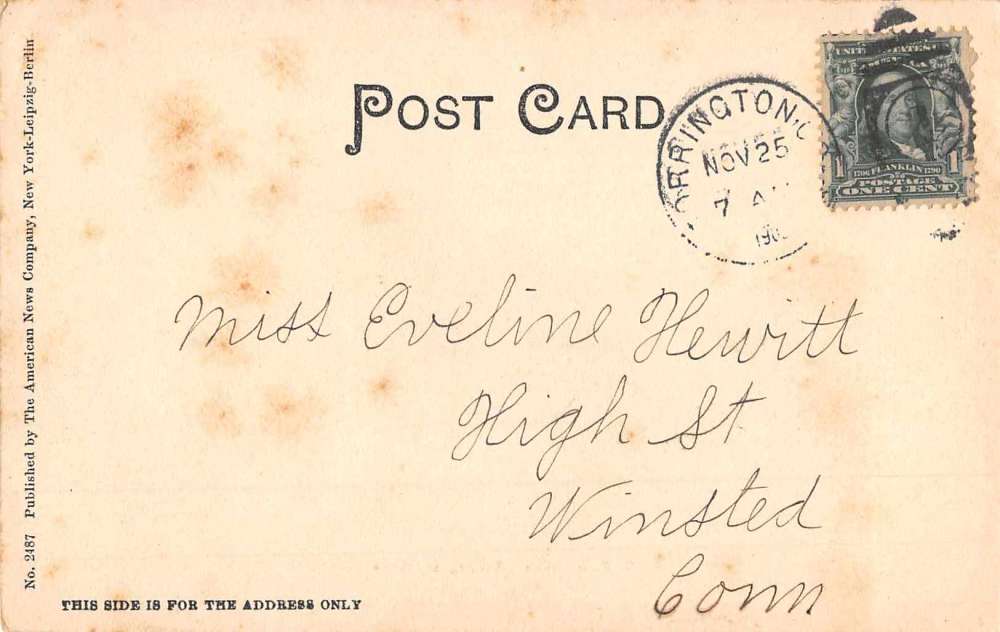 POST CARD
ORRINGTON
NOV 25
7 A
190
UNITED STATES
OF AMERICA
1706 FRANKLIN 1790
1 POSTAGE 1
ONE CENT
Miss Eveline Hewitt
High St
Winsted
Conn
THIS SIDE IS FOR THE ADDRESS ONLY
No. 2487 Published by The American News Company, New York-Leipzig-Berlin